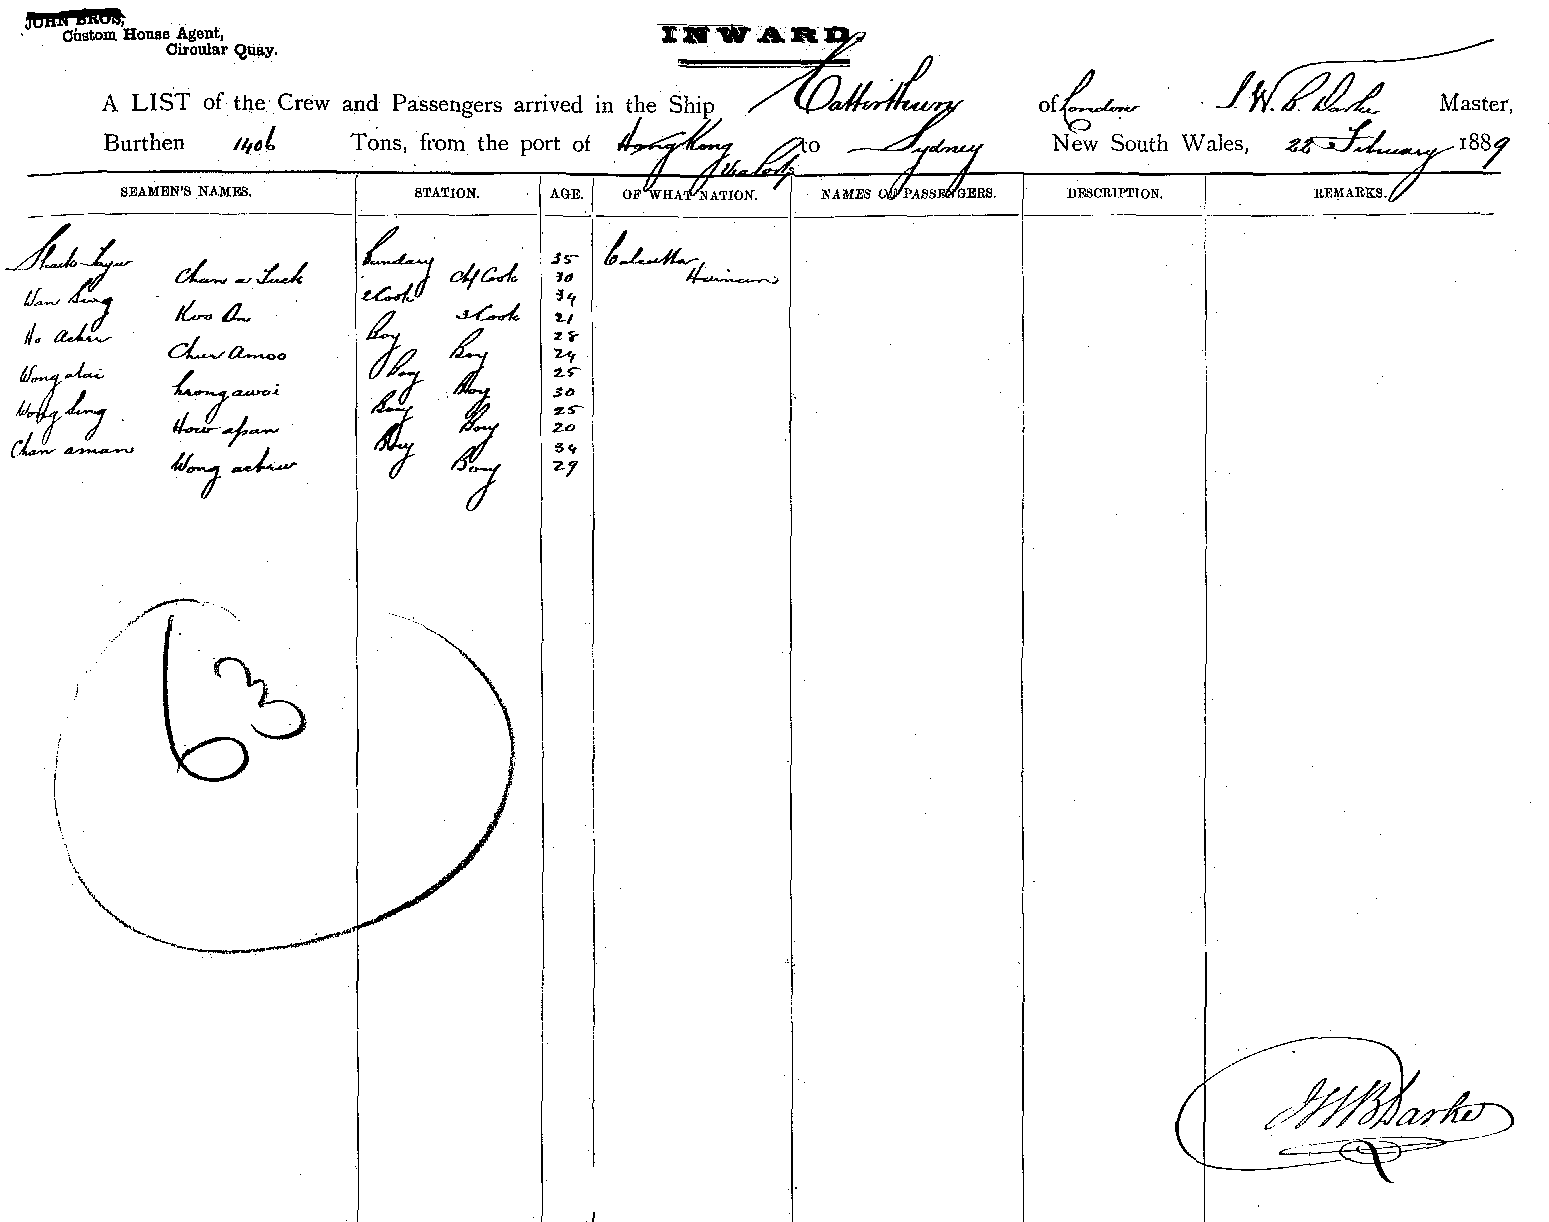 JOHN BROS,
Custom House Agent,
Circular Quay.
INWARD
A LIST of the Crew and Passengers arrived in the Ship Catterthun of London J W. B. Darke Master,
Burthen 1406 Tons, from the port of Hong Kong via Ports to Sydney New South Wales, 22 February 1889
SEAMEN'S NAMES. STATION. AGE. OF WHAT NATION. NAMES OF PASSENGERS. DESCRIPTION. REMARKS.
35 Calcutta
Chan a Tuck Ch Cook 30
Wan Sing 2 Cook 34
Koo On 3 Cook 21
Ho Boy 28
Amoo Boy 24
Wong alai Boy 25
awai Boy 30
Wong Sing Boy 25
How apan Boy 20
Chan aman Boy 34
Wong Boy 29
63
JWB Darke